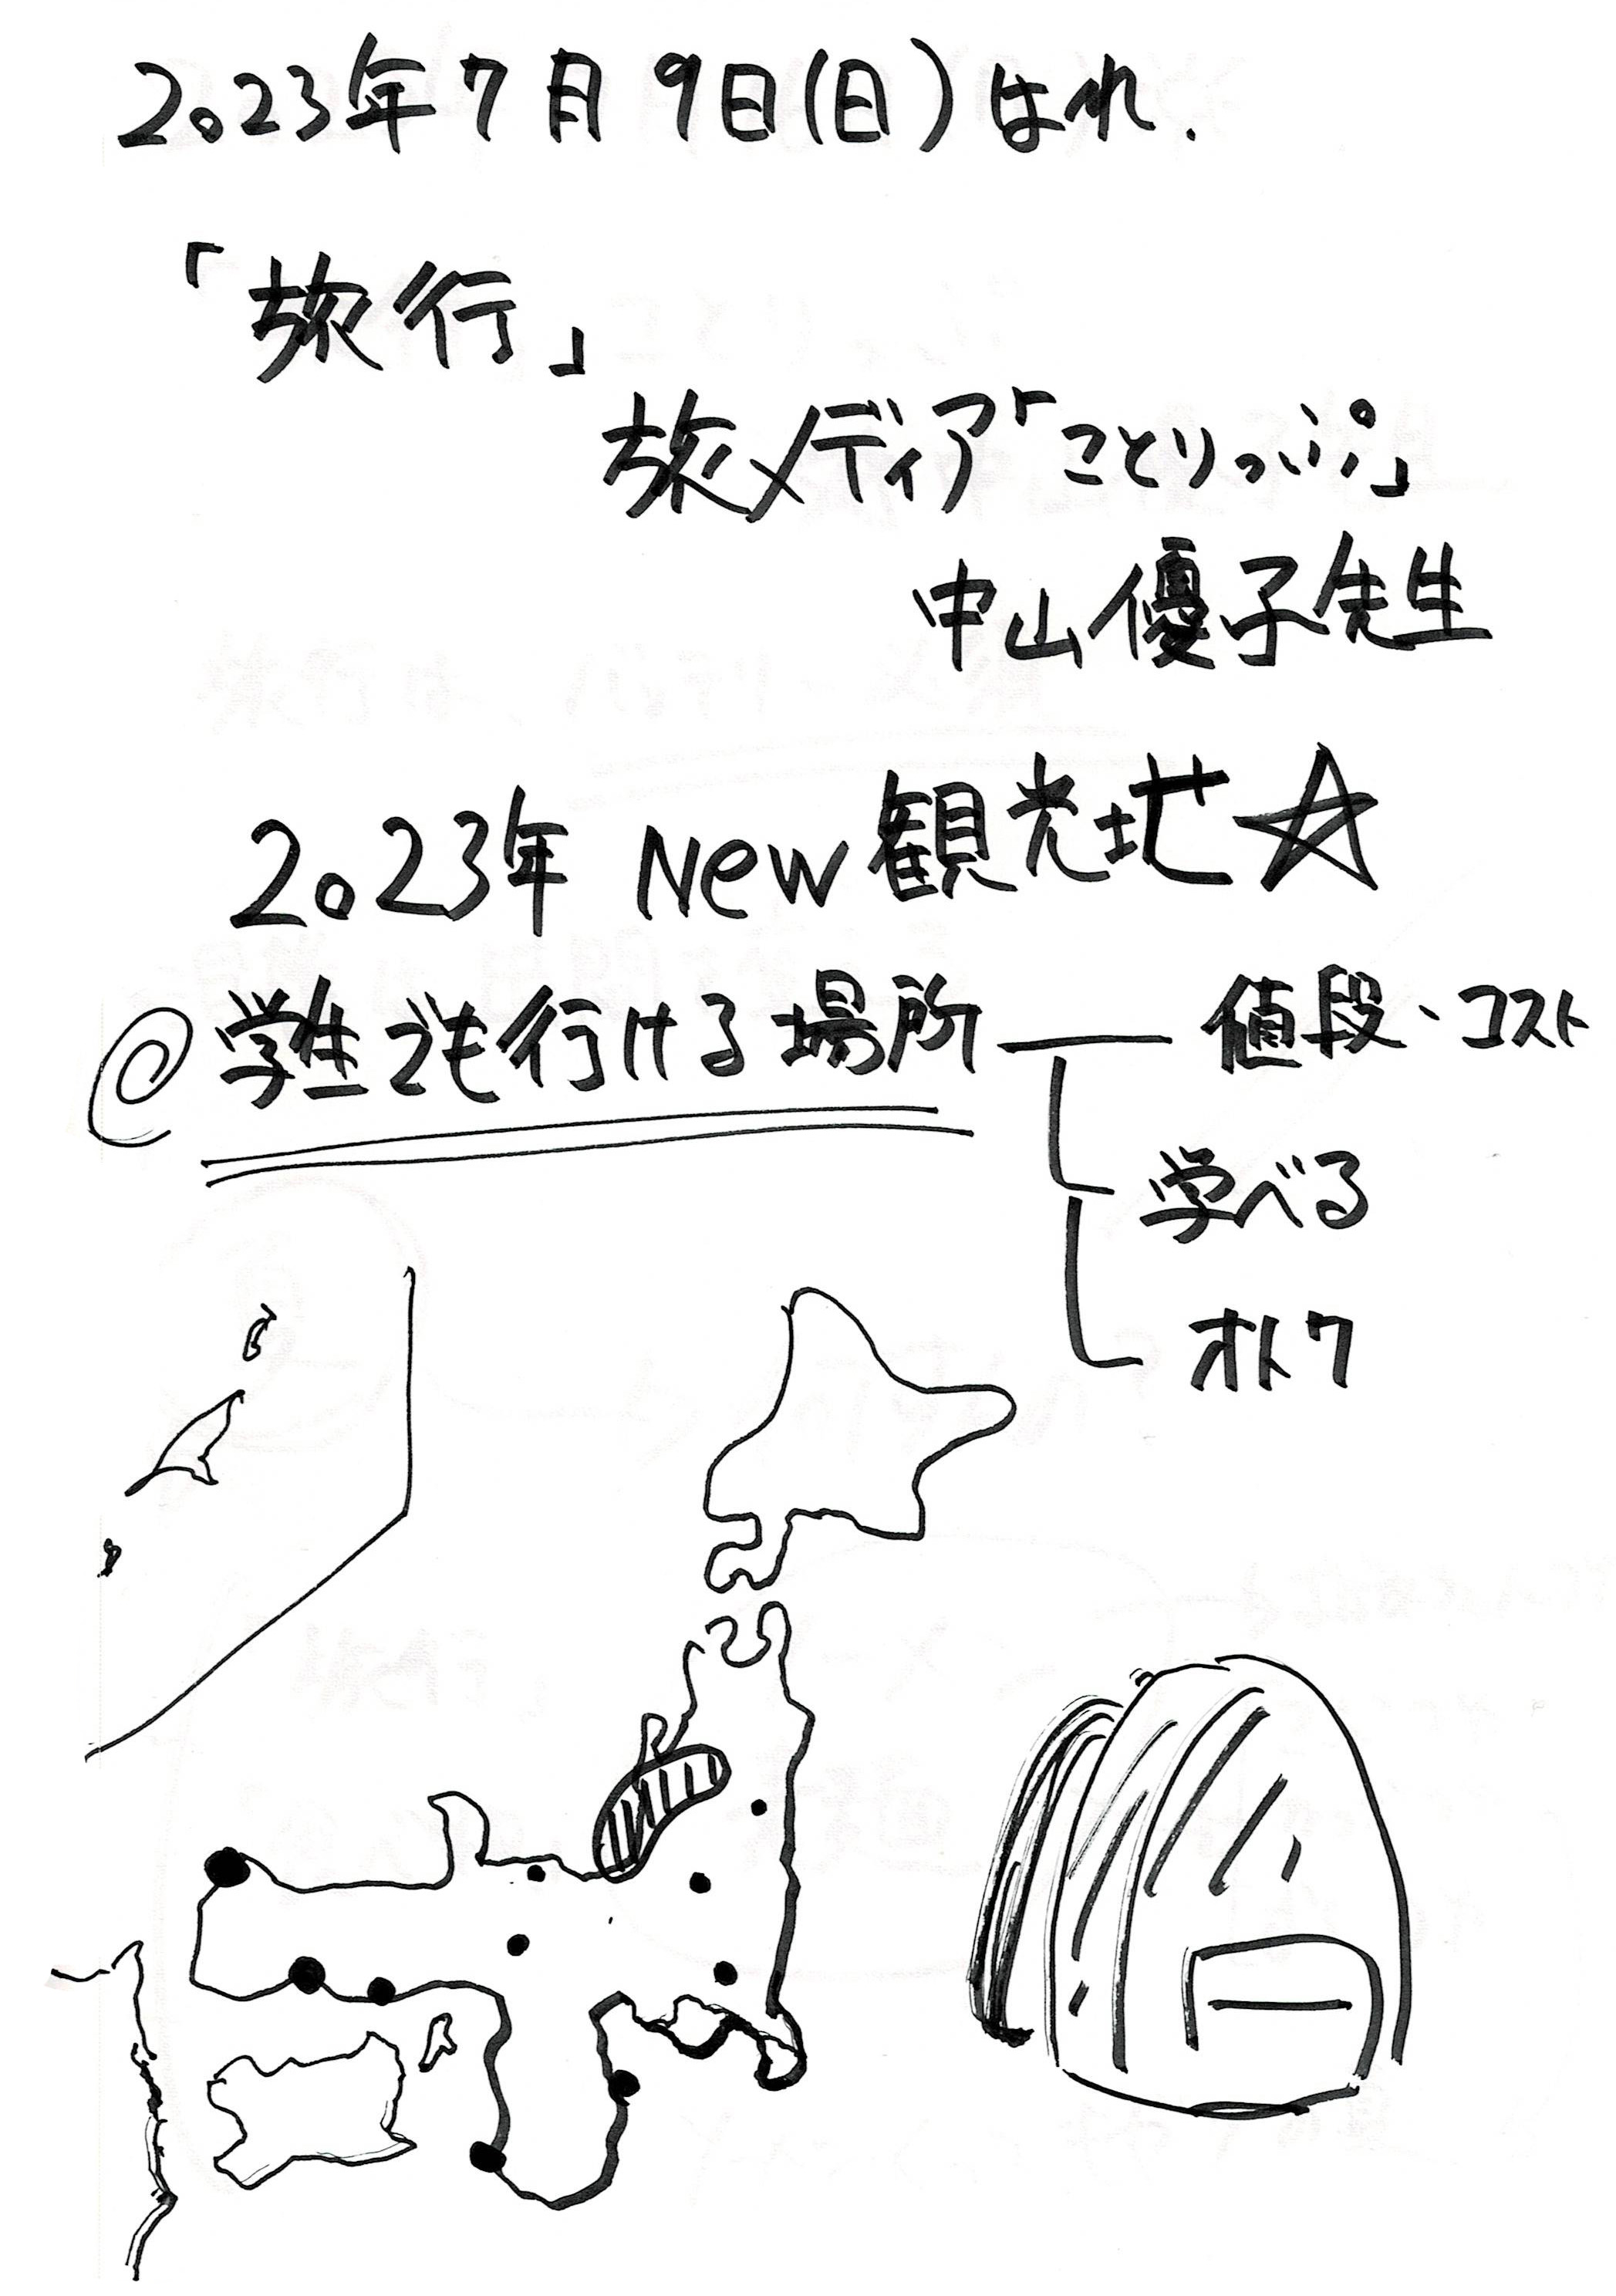 2023年7月9日(日)はれ.
「旅行」
旅メディア「ことりっぷ」
中山優子先生
2023年 New観光地☆
◎学生でも行ける場所 値段・コスト
学べる
オトク